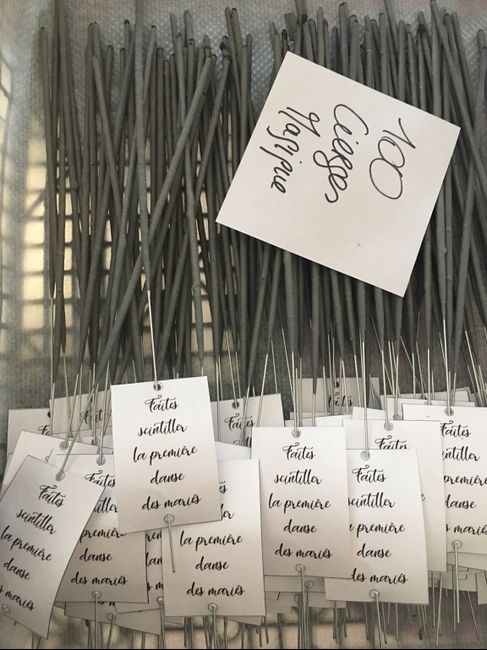 100
Cierges
Magique
Faites
scintiller
la première
danse
des mariés
Faites
scintiller
la première
danse
des mariés
Faites
scintiller
la première
danse
des mariés
Faites
scintiller
la première
danse
des mariés
première
danse
des mariés